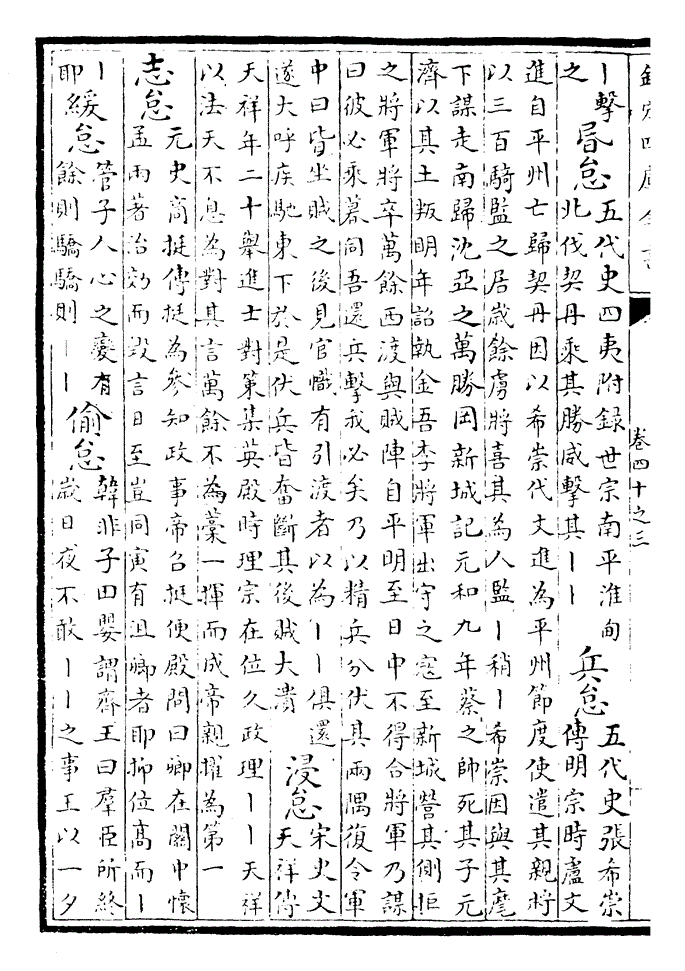 欽定四庫全書
卷四十之三
丨擊
之
昬怠
五代史四夷附録世宗南平淮甸
北伐契丹乘其勝威擊其丨丨
兵怠
五代史張希崇
傳明宗時盧文
進自平州亡歸契丹因以希崇代文進為平州節度使遣其親將
以三百騎監之居嵗餘虜將喜其為人監丨稍丨希崇因與其麾
下謀走南歸沈亞之萬勝岡新城記元和九年蔡之帥死其子元
濟以其土叛明年詔執金吾李將軍出守之寇至新城營其側拒
之將軍將卒萬餘西渡與賊陣自平明至日中不得合將軍乃謀
曰彼必乘暮向吾還兵擊我必矣乃以精兵分伏其兩隅復令軍
中曰皆坐賊之後見官幟有引渡者以為丨丨俱還
遂大呼疾馳東下於是伏兵皆奮斷其後賊大潰
浸怠
宋史文
天祥傳
天祥年二十舉進士對策集英殿時理宗在位久政理丨丨天祥
以法天不息為對其言萬餘不為藁一揮而成帝親擢為第一
志怠
元史商挺傳挺為參知政事帝召挺便殿問曰卿在關中懷
孟兩著治効而毀言日至豈同寅有沮卿者耶抑位髙而丨
丨
耶
緩怠
管子人心之變有
餘則驕驕則丨丨
偷怠
韓非子田嬰謂齊王曰羣臣所終
嵗日夜不敢丨丨之事王以一夕